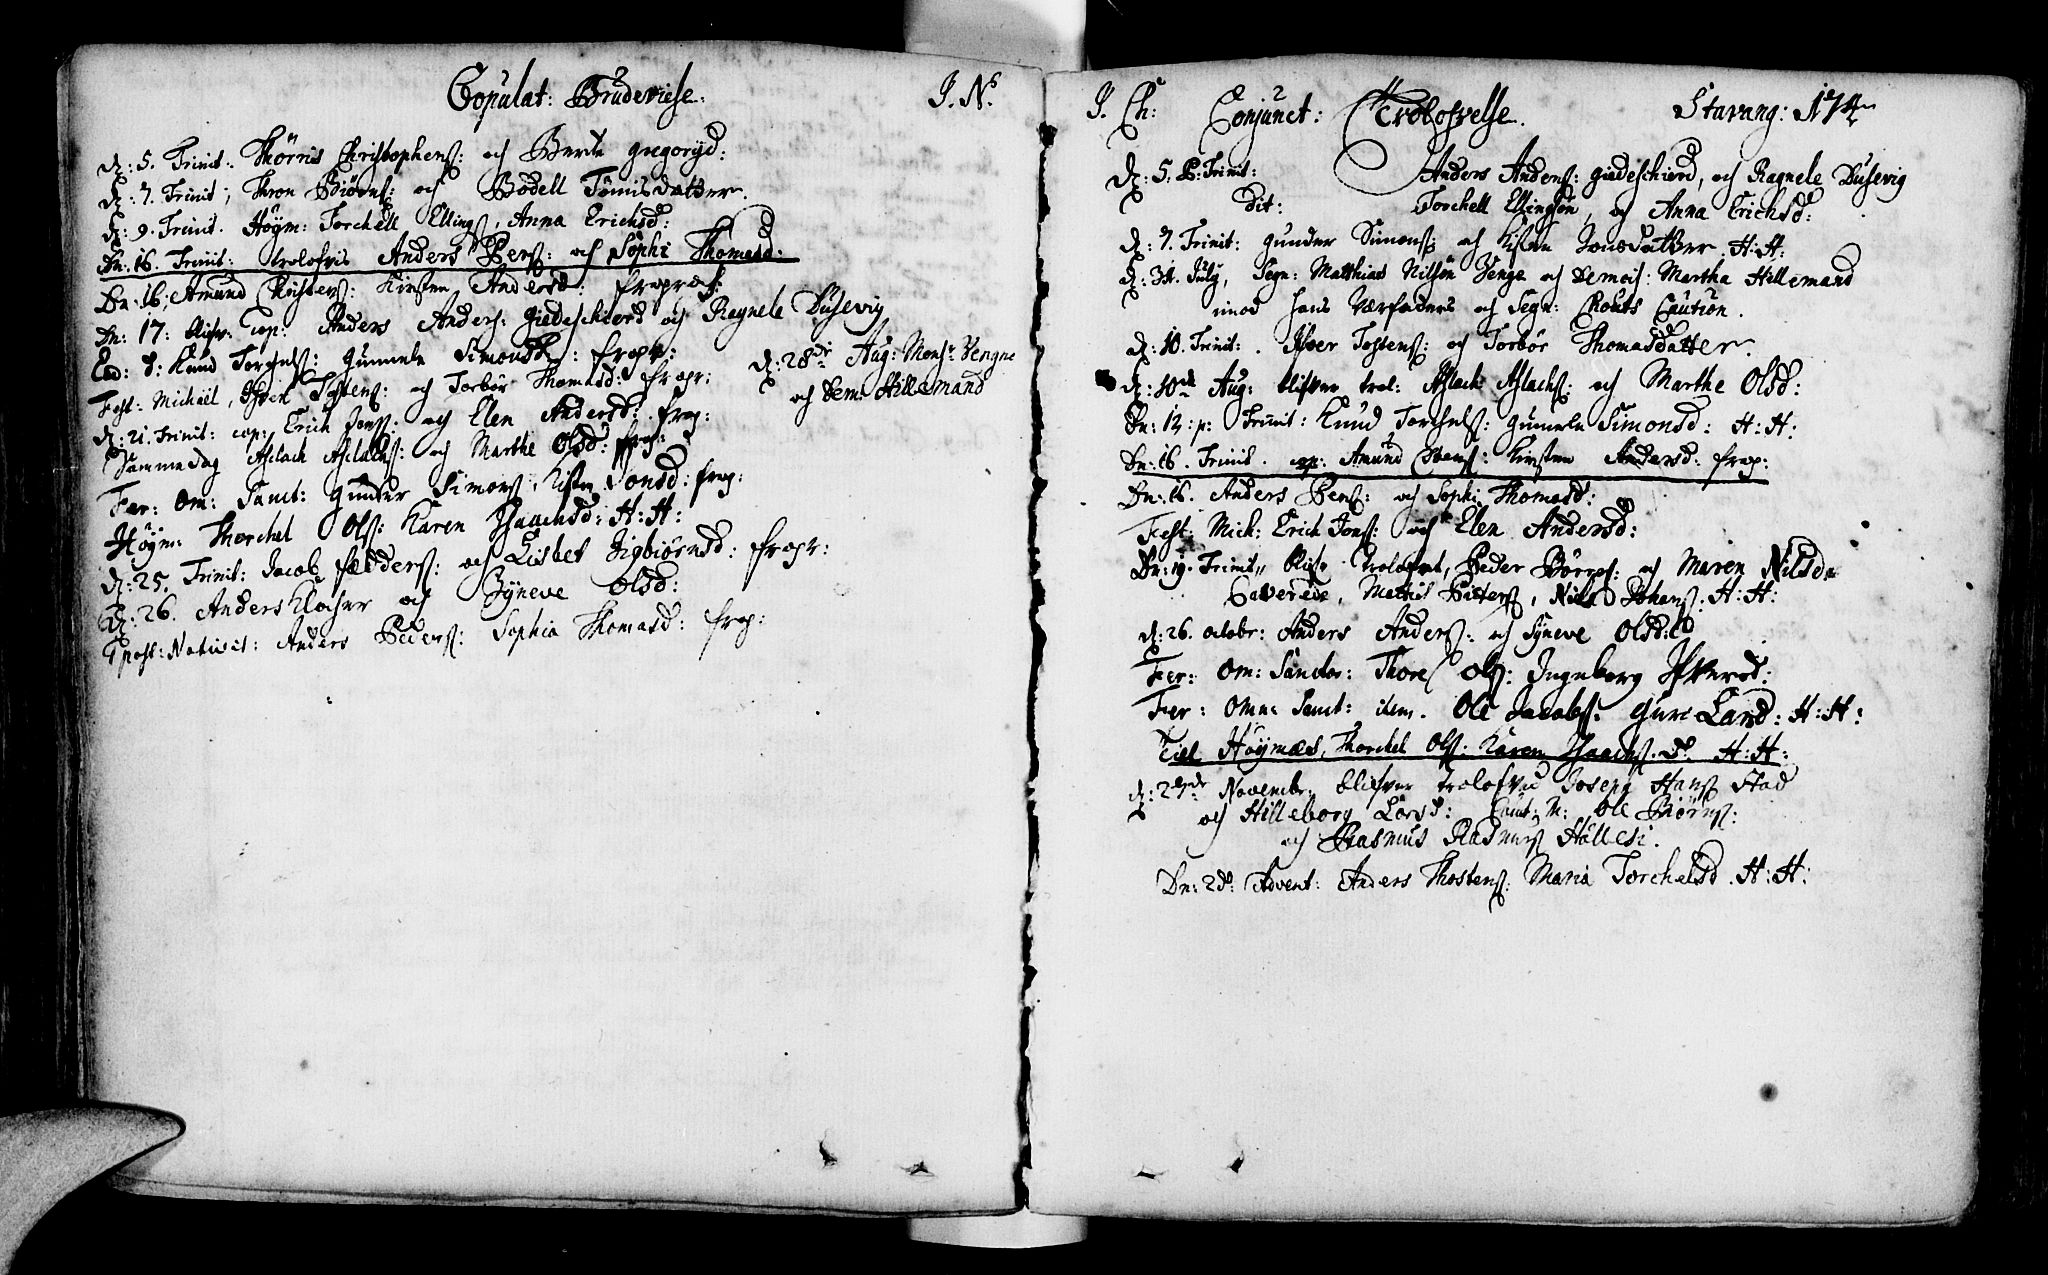 Copulat: Brudeviese. J. N.
d: 5. Trinit: Thörris Christophens: och Berte gregoryd:
d: 7. Trinit; Thron Biörns: och Bodell Tömisdatter.
d: 9. Trinit. Höym: Torchell Ellings, Anna Erichsd:
Dn: 16. Trinit: trolofvis Anders Pers: och Sophi Thomasd.
Dn: 16; Amund Christens: Kirsten Andersd:
Dn: 17: cop: Anders Anders: giedeschierd och Ragnele Dusevig
Eod: d: Knud Torchels: gunnele Simonsd: frop:
d: 28de Aug: Mons: Vengne
och Dem: Hillemand
Fest: Michaël, Ifver Tostens: och Torbor Thomasd: fropr:
d: 21. Trinit: cop:, Erich Jons: och Elen Andersd: frop:
Sammedag Aslach Aslachs: och Marthe Olsd: frop:
Fer: Om: Sanct: gunder Simons, Kisten Jonsd: frop:
Höym: Thorchel Ols: Karen Isaachsd: H: H:
d: 25. Trinit: Jacob Fedders: och Lisbet Sigbiörnsd: fropr:
d: 26. Anders Klocher och Syneve Olsd:
post: Nativit: Anders Peders: Sophia Thomasd: frop:
J. Ch: Conjunct: Trolofvelse. Stavang: 174
d: 5. P: Trinit: Anders Anders: giedeschierd, och Ragnele Dusevig
dit: Torchell Ellingsön, og Anna Erichsd:
d: 7. Trinit: gunder Simons: och Kisten Jonsdatter H: H:
d: 31. July, Segn: Matthias Nilsön Venge och Demois: Martha Hellemand
imod hans Værfaders och Segn: Caution.
d: 10. Trinit: Ifver Tostens: og Torbor Thomasdatter.
d: 10de Aug: blifver trol: Aslach Aslachs: och Marthe Olsd:
Dn: 12: p: Trinit: Knud Torchels: gunnele Simonsd: H: H:
Dn: 16. Trinit. Amund Christens: Kirsten Andersd: frop:
Dn: 16. Anders Pers: och Sophi Thomasd:
Fest: Mich: Erich Jons: och Elen Andersd:
Dn: 19. Trinit,, trolofvet, Peder Börres: och Maren Nilsd.
Caverede, Mathis Pitters, Nils Johans: H: H:
d: 26. octobr: Anders Anders: och Syneve Olsd:
Fer: Om: Sanctor: Thore Ols: Ingeborg Ifversd:
Fer: Omn: Sanct: item. Ole Jacobs: guri Larsd: H: H:
Höymæs, Thorchel Ols: Karen Isaachs. d. H: H:
d: 27de Novembr: blifver trolofvid Joseph Hans Stad
och Hilleborg Larsd: Caut: M: Ole Biörns:
och Rasmus Rasmus
Dn: 2da: Advent: Anders Thostens: Maria Torchelsd. H: H: